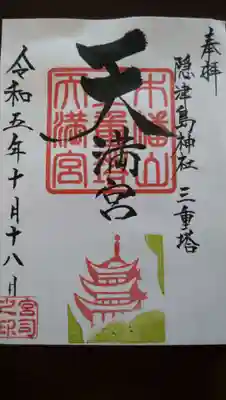 奉拝
隠津島神社 三重塔
天満宮
令和五年十月十八日
木幡山
三重塔
天満宮
宮司之印